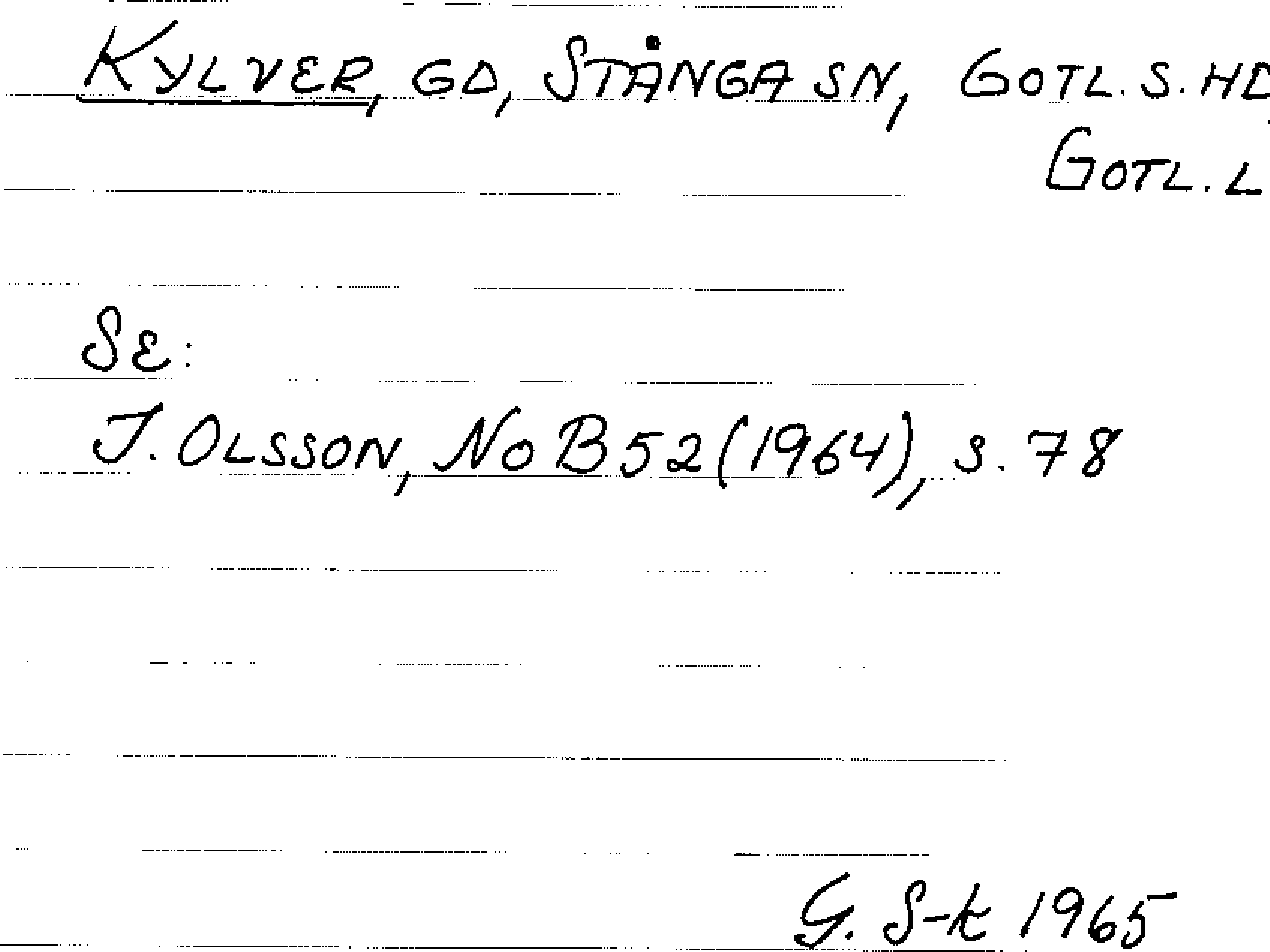 KYLVER, GD, STÅNGA SN, GOTL. S. HD
GOTL. L
SE:
I. OLSSON, NoB 52 (1964), s. 78
G. S-k 1965